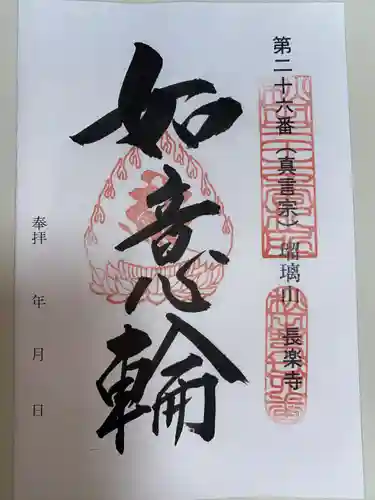 第二十六番（真言宗）瑠璃山 長楽寺
如意輪
奉拝 年 月 日